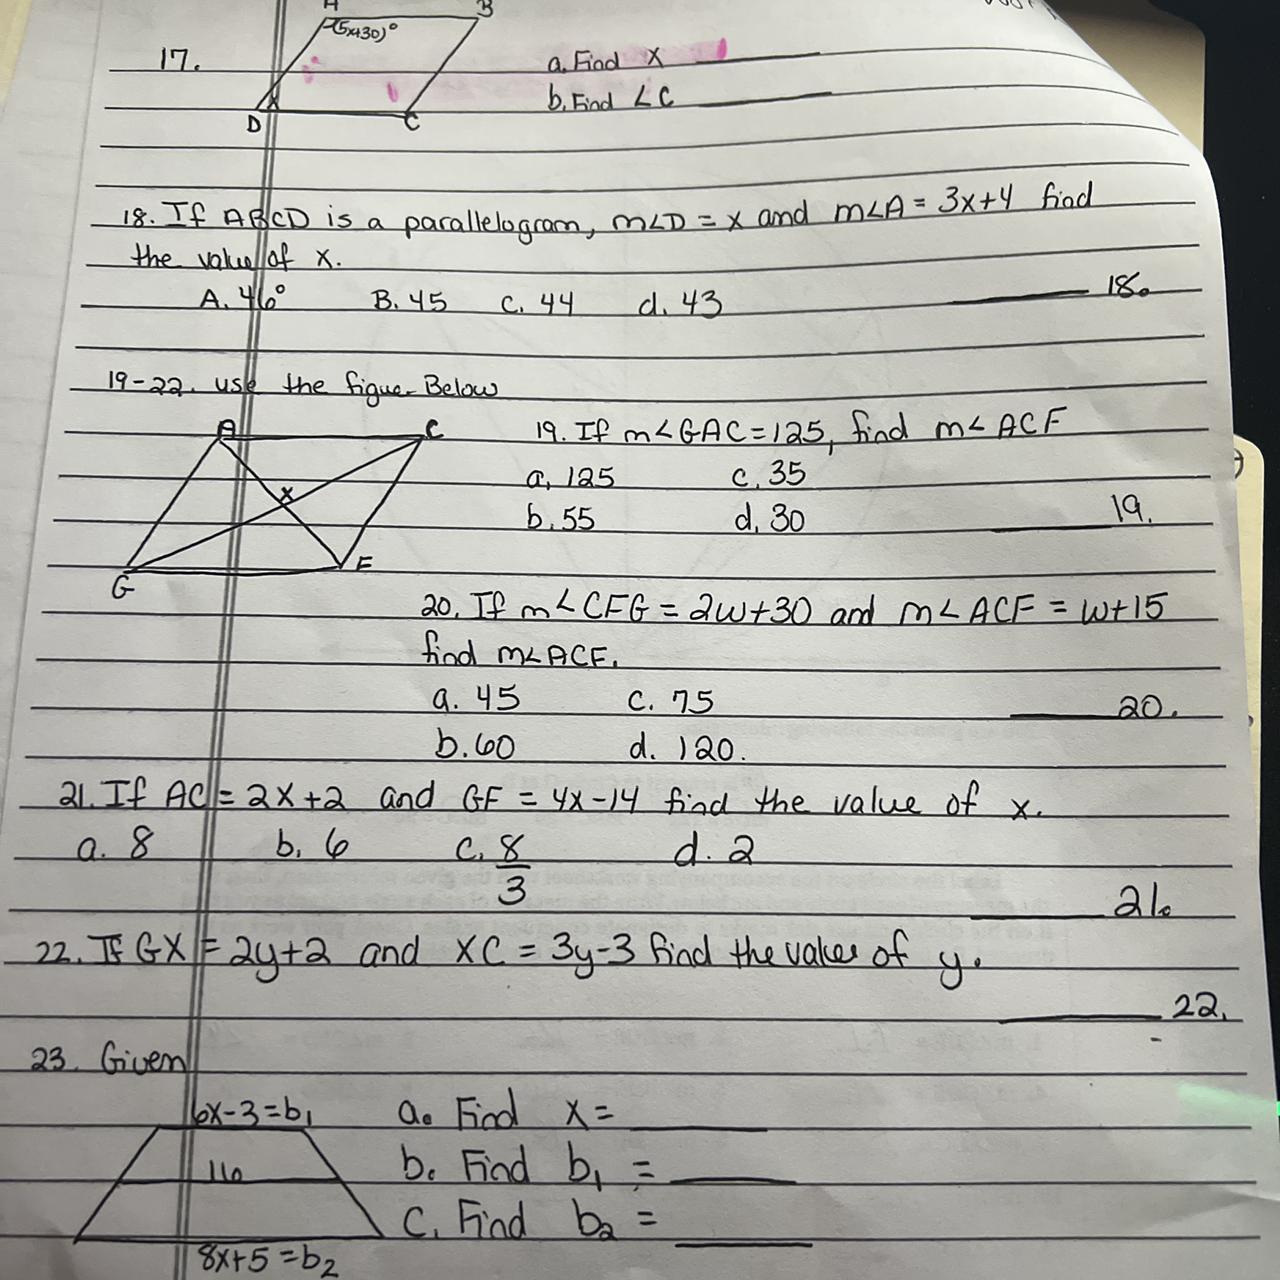 A B
(5x+30)°
17.
a. Find x
b. Find ∠C
D C
18. If ABCD is a parallelogram, m∠D = x and m∠A = 3x+4 find
the value of x.
A. 46° B. 45 C. 44 d. 43
18.
19-22. use the figue Below
A C
X
G F
19. If m∠GAC = 125, find m∠ACF
a. 125 c. 35
b. 55 d. 30
19.
20. If m∠CFG = 2w+30 and m∠ACF = w+15
find m∠ACF.
a. 45 c. 75
b. 60 d. 120.
20.
21. If AC = 2x+2 and GF = 4x-14 find the value of x.
a. 8 b. 6 c. 8/3 d. 2
21.
22. If GX = 2y+2 and XC = 3y-3 find the value of y.
22.
23. Given
6x-3=b₁
16
8x+5=b₂
a. Find x =
b. Find b₁ =
c. Find b₂ =